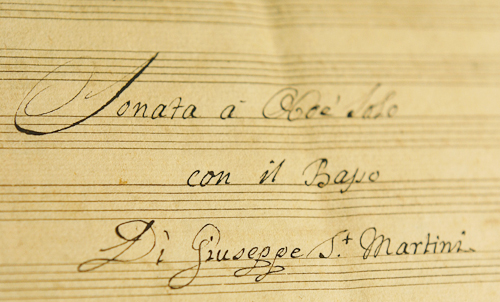 Sonata à Oboè Solo
con il Basso
Di Giuseppe S.t Martini.